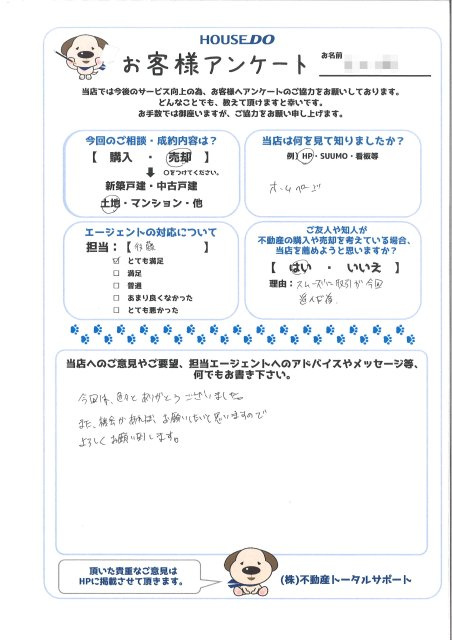 HOUSEDO
お客様アンケート
お名前
当店では今後のサービス向上の為、お客様へアンケートのご協力をお願いしております。
どんなことでも、教えて頂けますと幸いです。
お手数では御座いますが、ご協力をお願い申し上げます。
今回のご相談・成約内容は?
【 購入 ・ 売却 】
○をつけてください。
新築戸建・中古戸建
土地・マンション・他
当店は何を見て知りましたか?
例) HP・SUUMO・看板等
ホームページ
エージェントの対応について
担当:【 】
☑ とても満足
☐ 満足
☐ 普通
☐ あまり良くなかった
☐ とても悪かった
ご友人や知人が
不動産の購入や売却を考えている場合、
当店を薦めようと思いますか?
【 はい ・ いいえ 】
理由: スムーズに取引が今回
当店へのご意見やご要望、担当エージェントへのアドバイスやメッセージ等、
何でもお書き下さい。
今回は、色々とありがとうございました。
また、機会があれば、お願いしたいと思いますので
よろしくお願い致します。
頂いた貴重なご意見は
HPに掲載させて頂きます。
(株)不動産トータルサポート